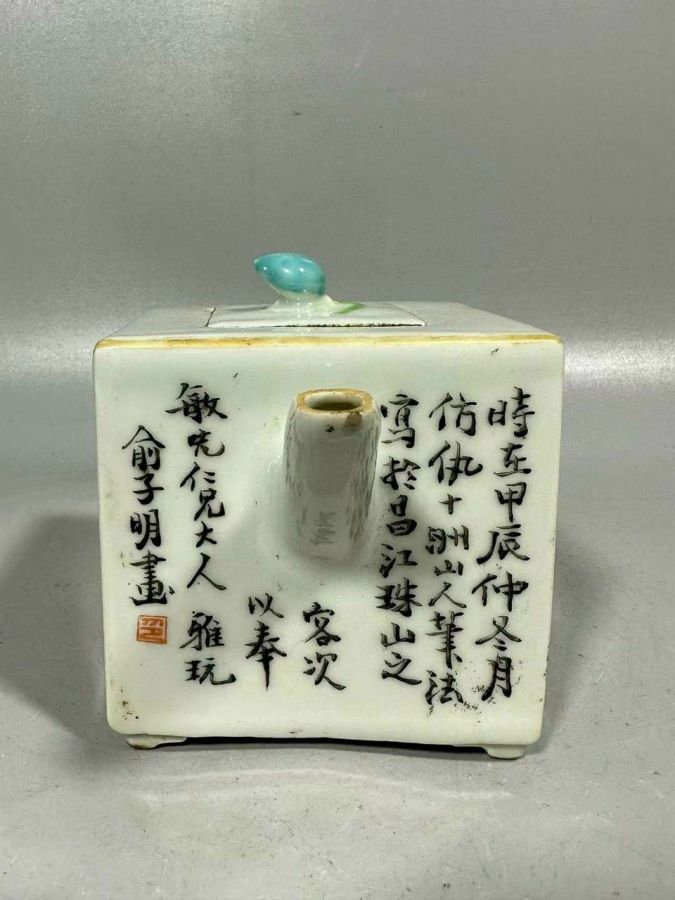 時在甲辰仲冬月
仿仇十洲山人筆法
寫於昌江珠山之
客次
以奉
敏先仁兄大人 雅玩
俞子明畫